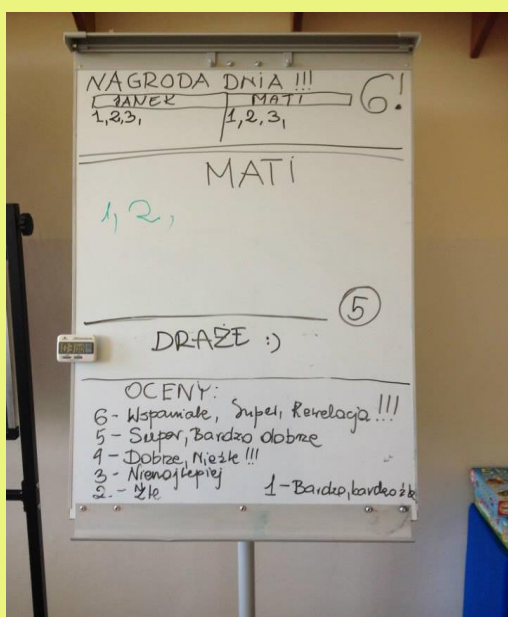 NAGRODA DNIA !!!
6!
JANEK MATI
1,2,3, 1,2,3,
MATI
1, 2,
5
DRAŻE :)
OCENY:
6 - Wspaniale, Super, Rewelacja !!!
5 - Super, Bardzo dobrze
4 - Dobrze, Nieźle !!!
3 - Nienajlepiej
2 - Źle 1 - Bardzo, bardzo źle